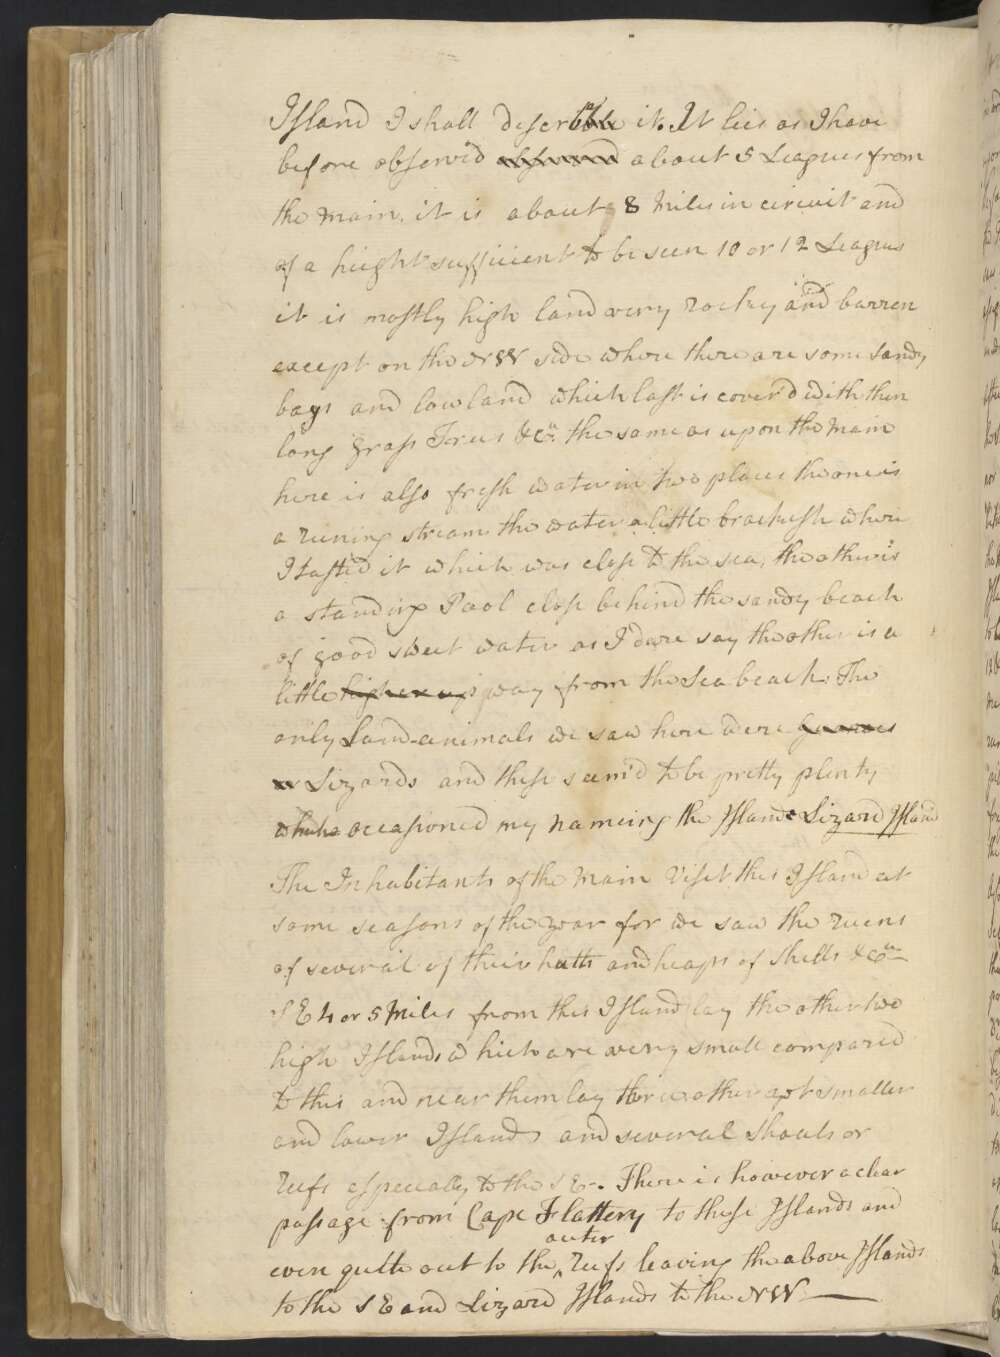 Island I shall describe it. It lies as I have
before observed observed about 5 Leagues from
the Main, it is about 8 Miles in circuit and
of a height sufficient to be seen 10 or 12 Leagues
it is mostly high land very rockey and barren
except on the NW side where there are some sandy
bays and low land which last is cover'd with thin
long grass Trees &ca the same as upon the Main
here is also fresh water in two places the one is
a runing stream the water a little brackish where
I tasted it which was close to the sea, the other is
a standing Pool close behind the sandy beach
of good sweet water as I dare say the other is a
little higher up way from the Sea beach. The
only Land-animals we saw here were Guanoes
or Lizards and these seem'd to be pretty plenty
which occasioned my nameing the Island Lizard Island
The Inhabitants of the Main Visit this Island at
some seasons of the year for we saw the ruens
of several of their hutts and heaps of Shells &ca
SE 4 or 5 Miles from this Island lay the other two
high Islands which are very small compared
to this and near them lay three other yet smaller
and lower Islands and several Shoals or
reefs especially to the SE. There is however a clear
passage from Cape Flattery to these Islands and
even quite out to the outer reefs leaving the above Islands
to the SE and Lizard Islands to the NW